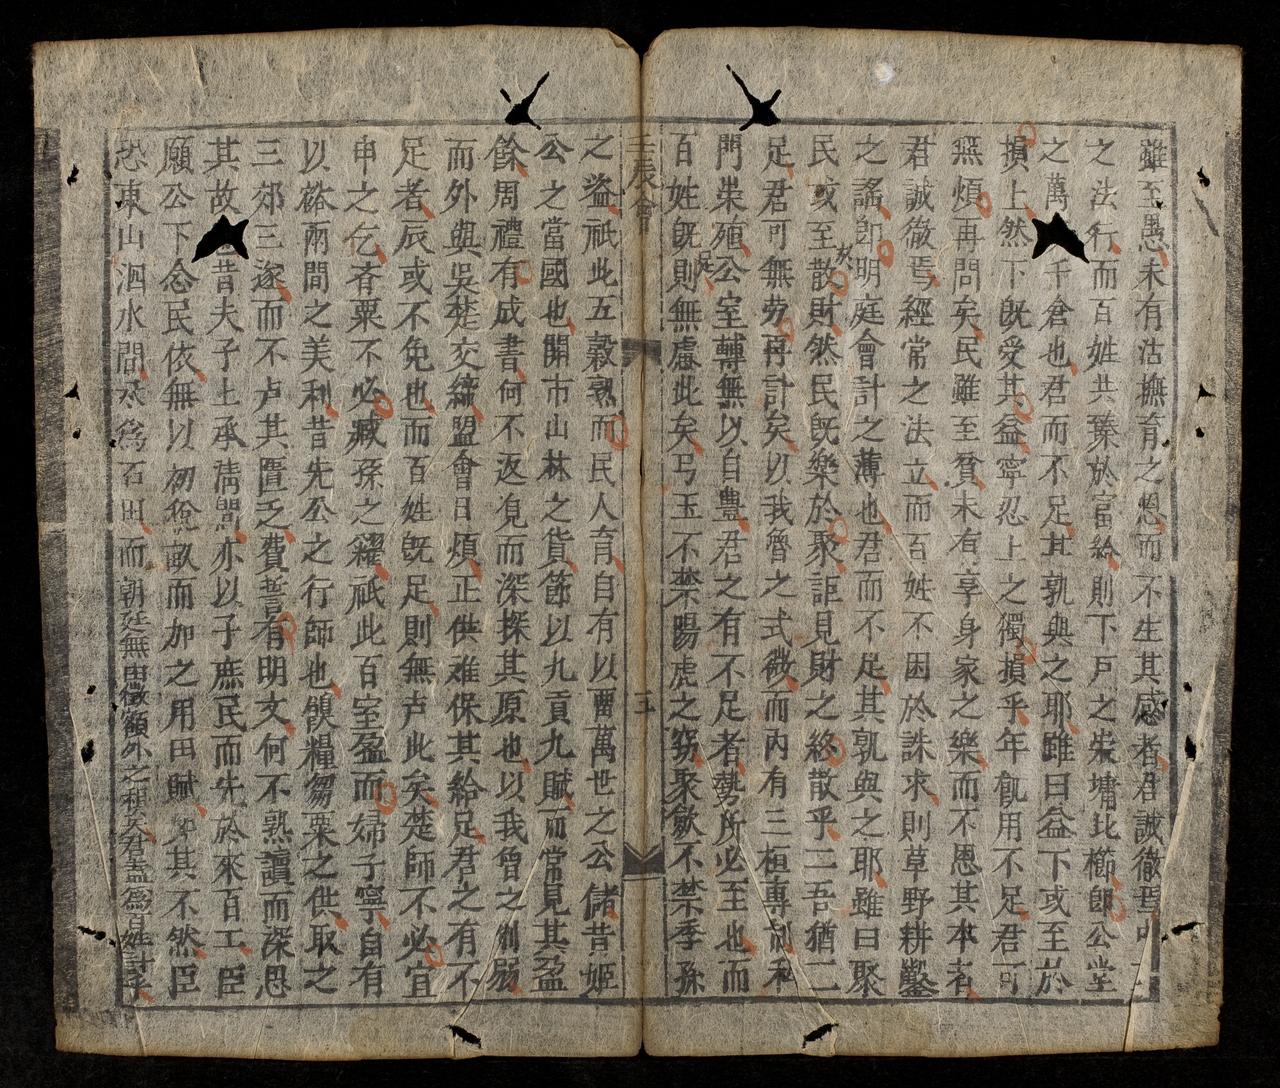 雖至愚未有沾撫育之恩而不生其感者君誠徹焉
之法行而百姓共臻於富給則下戶之崇墉比櫛即公堂
之萬千倉也君而不足其孰與之耶雖曰益下或至於
損上然下既受其益寧忍上之獨損乎年飢用不足君可
無煩再問矣民雖至貧未有享身家之樂而不恩其本者
君誠徹焉經常之法立而百姓不困於誅求則草野耕鑿
之謠即明庭會計之薄也君而不足其孰與之耶雖曰聚
民或至於散財然民既樂於聚詎見財之終散乎二吾猶二
足君可無勞再計矣以我魯之式微而內有三桓專制私
門崇殖公室轉無以自豊君之有不足者勢所必至也而
百姓既足則無慮此矣弓玉不禁陽虎之竊聚歛不禁季孫
壬辰會
三
之盜祇此五穀熟而民人育自有以畱萬世之公儲昔姬
公之當國也開市山林之貨節以九貢九賦而常見其盈
餘周禮有成書何不返見而深探其原也以我曾之削弱
而外與吳楚交綏盟會日煩正供难保其給足君之有不
足者辰或不免也而百姓既足則無慮此矣楚師不必宜
申之乞斉粟不必臧孫之糴祇此百室盈而婦子寧自有
以裕兩間之美利昔先公之行師也餱糧芻粟之供取之
三郊三遂而不虑其匱乏費誓有明文何不熟讀而深思
其故也昔夫子上承淸問亦以子庶民而先於來百工臣
願公下念民依無以初稅畝而加之用田賦其不然臣
恐東山泗水間尽為石田而朝廷無田徵額外之租矣君盍為百姓計乎